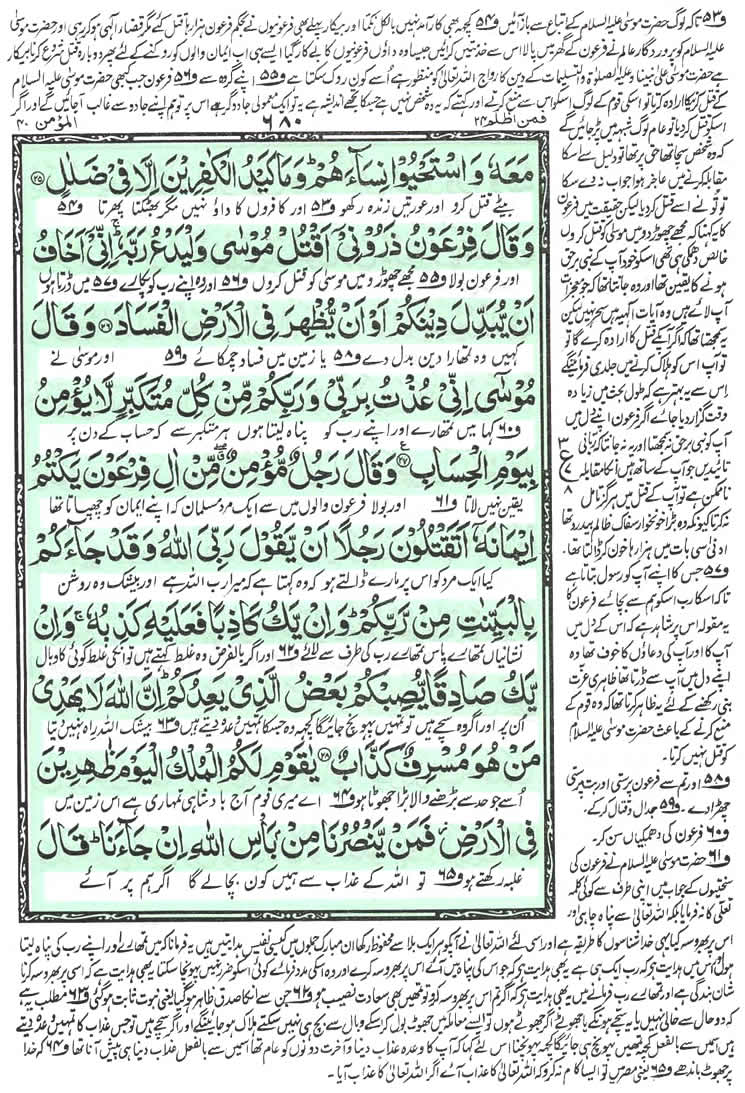 و۵۳ تاکہ لوگ حضرت موسیٰ علیہ السلام کے اتباع سے باز آئیں و۵۴ کچھ بھی کارآمد نہیں بالکل نکما اور بیکار پہلے بھی فرعونیوں نے بحکم فرعون ہزارہا قتل کیے مگر قضاء الٰہی ہو کر رہی اور حضرت موسیٰ
علیہ السلام کو پروردگار عالم نے فرعون کے گھر میں پالا اس سے خدمتیں کرائیں جیسا وہ داؤں فرعونیوں کا بے کار گیا ایسے ہی اب ایمان والوں کو روکنے کے لئے پھر دوبارہ قتل شروع کرنا بیکار
ہے حضرت موسیٰ علیٰ نبینا وعلیہ الصلوٰۃ والتسلیمات کے دین کا رواج اللہ تعالیٰ کو منظور ہے اسے کون روک سکتا ہے و۵۵ اپنے گروہ سے و۵۶ فرعون جب کبھی حضرت موسیٰ علیہ السلام
کے قتل کرنیکا ارادہ کرتا تو اس کی قوم کے لوگ اسکو اس سے منع کرتے اور کہتے کہ یہ وہ شخص نہیں ہے جس کا تجھے اندیشہ ہے یہ تو ایک معمولی جادوگر ہے اس پر تو ہم اپنے جادو سے غالب آجائیں گے اور اگر
فمن اظلم ۲۴
۶۸۰
المؤمن ۴۰
مَعَهٗ وَاسْتَحْيُوْا نِسَآءَهُمْ ؕ وَمَا كَيْدُ الْكٰفِرِيْنَ اِلَّا فِيْ ضَلٰلٍ ﴿۲۵﴾
بیٹے قتل کرو اور عورتیں زندہ رکھو و۵۳ اور کافروں کا داؤ نہیں مگر بھٹکتا پھرتا و۵۴
وَقَالَ فِرْعَوْنُ ذَرُوْنِيْۤ اَقْتُلْ مُوْسٰى وَلْيَدْعُ رَبَّهٗ ۚ اِنِّيْۤ اَخَافُ
اور فرعون بولا و۵۵ مجھے چھوڑو میں موسیٰ کو قتل کروں و۵۶ اور وہ اپنے رب کو پکارے و۵۷ میں ڈرتا ہوں
اَنْ يُّبَدِّلَ دِيْنَكُمْ اَوْ اَنْ يُّظْهِرَ فِي الْاَرْضِ الْفَسَادَ ﴿۲۶﴾ وَقَالَ
کہیں وہ تمہارا دین بدل دے و۵۸ یا زمین میں فساد چمکائے و۵۹ اور موسیٰ نے
مُوْسٰۤى اِنِّيْ عُذْتُ بِرَبِّيْ وَرَبِّكُمْ مِّنْ كُلِّ مُتَكَبِّرٍ لَّا يُؤْمِنُ
و۶۰ کہا میں تمہارے اور اپنے رب کو پناہ لیتا ہوں ہر متکبر سے کہ حساب کے دن پر
بِيَوْمِ الْحِسَابِ ﴿۲۷﴾ وَقَالَ رَجُلٌ مُّؤْمِنٌ مِّنْ اٰلِ فِرْعَوْنَ يَكْتُمُ
یقین نہیں لاتا و۶۱ اور بولا فرعون والوں میں سے ایک مرد مسلمان کہ اپنے ایمان کو چھپاتا تھا
اِيْمَانَهٗۤ اَتَقْتُلُوْنَ رَجُلًا اَنْ يَّقُوْلَ رَبِّيَ اللّٰهُ وَقَدْ جَآءَكُمْ
کیا ایک مرد کو اس پر مارے ڈالتے ہو کہ وہ کہتا ہے کہ میرا رب اللہ ہے اور بیشک وہ روشن
بِالْبَيِّنٰتِ مِنْ رَّبِّكُمْ ؕ وَاِنْ يَّكُ كَاذِبًا فَعَلَيْهِ كَذِبُهٗ ۚ وَاِنْ
نشانیاں تمہارے پاس تمہارے رب کی طرف سے لائے و۶۲ اور اگر بالفرض وہ غلط کہتے ہیں تو انکی غلط گوئی کا وبال
يَّكُ صَادِقًا يُّصِبْكُمْ بَعْضُ الَّذِيْ يَعِدُكُمْ ؕ اِنَّ اللّٰهَ لَا يَهْدِيْ
ان پر اور اگر وہ سچے ہیں تو تمہیں پہونچ جائیگا کچھ وہ جسکا تمہیں وعدہ دیتے ہیں و۶۳ بیشک اللہ راہ نہیں دیتا
مَنْ هُوَ مُسْرِفٌ كَذَّابٌ ﴿۲۸﴾ يٰقَوْمِ لَكُمُ الْمُلْكُ الْيَوْمَ ظٰهِرِيْنَ
اسے جو حد سے بڑھنے والا بڑا جھوٹا ہو و۶۴ اے میری قوم آج بادشاہی تمہاری ہے اس زمین میں
فِي الْاَرْضِ ؗ فَمَنْ يَّنْصُرُنَا مِنْۢ بَاْسِ اللّٰهِ اِنْ جَآءَنَا ؕ قَالَ
غلبہ رکھتے ہو و۶۵ تو اللہ کے عذاب سے ہمیں کون بچالے گا اگر ہم پر آئے
اسکو قتل کر دیا تو عام لوگ شبہہ میں پڑ جائیں گے
کہ وہ شخص سچا تھا حق پر تھا تو دلیل سے سکا
مقابلہ کرنے میں عاجز ہوا جواب نہ دے سکا
تو تو نے اسے قتل کر دیا لیکن حقیقت میں فرعون
کا یہ کہنا کہ مجھے چھوڑ دو میں موسیٰ کو قتل کروں
خالص دھمکی ہی تھی اسکو خود آپ کے نبی برحق
ہونے کا یقین تھا اور وہ جانتا تھا کہ جو معجزات
آپ لائے ہیں وہ آیات الٰہیہ ہیں سحر نہیں لیکن
یہ سمجھتا تھا کہ اگر آپکے قتل کا ارادہ کرے گا
تو آپ اس کو ہلاک کرنے میں جلدی فرمائیں گے
اس سے یہ بہتر ہے کہ طول بحث میں زیادہ
وقت گزار دیا جائے اگر فرعون اپنے دل میں
آپ کو نبی برحق نہ سمجھتا اور یہ نہ جانتا کہ ربانی
تائیدیں جو آپ کے ساتھ ہیں ان کا مقابلہ
ناممکن ہے تو آپ کے قتل میں ہرگز تامل
نہ کرتا کیونکہ وہ بڑا خونخوار سفاک ظالم بیدرد تھا
ادنیٰ سی بات میں ہزارہا خون کر ڈالتا تھا۔
و۵۷ جس کا اپنے آپ کو رسول بتاتا ہے
تاکہ اسکا رب اسکو ہم سے بچائے فرعون کا
یہ مقولہ اس پر شاہد ہے کہ اس کے دل میں
آپ کا اور آپ کی دعاؤں کا خوف تھا وہ
اپنے دل میں آپ سے ڈرتا تھا ظاہری عزت
بنی رکھنے کے لئے یہ ظاہر کرتا تھا کہ وہ قوم کے
منع کرنے کے باعث حضرت موسیٰ علیہ السلام
کو قتل نہیں کرتا۔
و۵۸ اور تم سے فرعون پرستی اور بت پرستی
چھڑا دے۔ و۵۹ جدال و قتال کر کے۔
و۶۰ فرعون کی دھمکیاں سن کر۔
و۶۱ حضرت موسیٰ علیہ السلام نے فرعون کی
سختیوں کے جواب میں اپنی طرف سے کوئی کلمہ
تعلّی کا نہ فرمایا بلکہ اللہ تعالیٰ سے پناہ چاہی اور
۳
ع
۷
۸
اس پر بھروسہ کیا یہی خدا شناسوں کا طریقہ ہے اور اسی لئے اللہ تعالیٰ نے آپکو ہر ایک بلا سے محفوظ رکھا ان مبارک جملوں میں کیسی نفیس ہدایتیں ہیں یہ فرمانا کہ میں تمہارے اور اپنے رب کی پناہ لیتا
ہوں اور اس میں ہدایت ہے کہ رب ایک ہی ہے یہ بھی ہدایت ہے کہ جو اس کی پناہ میں آئے اس پر بھروسہ کرے اور وہ اسکی مدد فرمائے کوئی اسکو ضرر نہیں پہونچا سکتا یہ بھی ہدایت ہے کہ اسی پر بھروسہ کرنا
شان بندگی ہے اور تمہارے رب فرمانے میں یہ بھی ہدایت ہے کہ اگر تم اس پر بھروسہ کرو تو تمہیں بھی سعادت نصیب ہو و۶۲ جن سے انکا صدق ظاہر ہو گیا یعنی نبوت ثابت ہو گئی و۶۳ مطلب یہ ہے
کہ دو حال سے خالی نہیں یا یہ سچے ہونگے یا جھوٹے اگر جھوٹے ہوں تو ایسے معاملہ میں جھوٹ بول کر اسکے وبال سے بچ ہی نہیں سکتے ہلاک ہو جائینگے اور اگر سچے ہیں تو جس عذاب کا تمہیں وعدہ دیتے
ہیں اسمیں سے بالفعل کچھ تمہیں پہونچ ہی جائیگا کچھ پہونچنا اس لئے کہا کہ آپ کا وعدہ عذاب دنیا و آخرت دونوں کو عام تھا اسمیں سے بالفعل عذاب دنیا ہی پیش آنا تھا و۶۴ کہ خدا
پر جھوٹ باندھے و۶۵ یعنی مصر میں تو ایسا کام نہ کرو کہ اللہ تعالیٰ کا عذاب آئے اگر اللہ تعالیٰ کا عذاب آیا۔